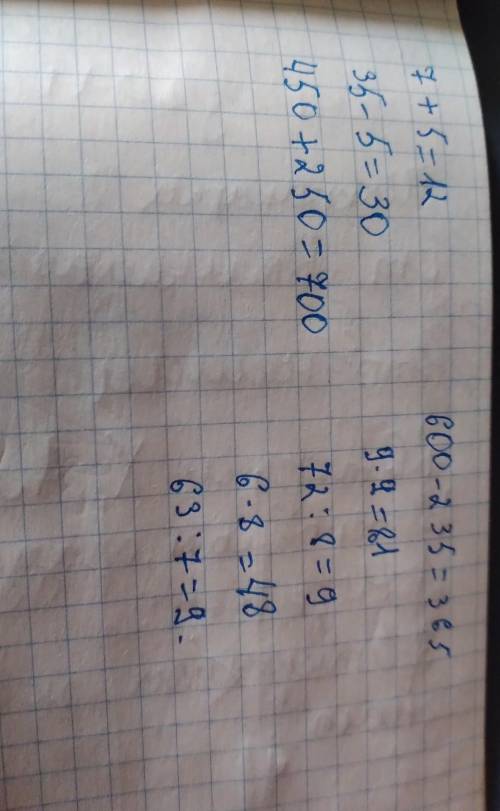 7 + 5 = 12
35 - 5 = 30
450 + 250 = 700
600 - 235 = 365
9 · 9 = 81
72 : 8 = 9
6 · 8 = 48
63 : 7 = 9.